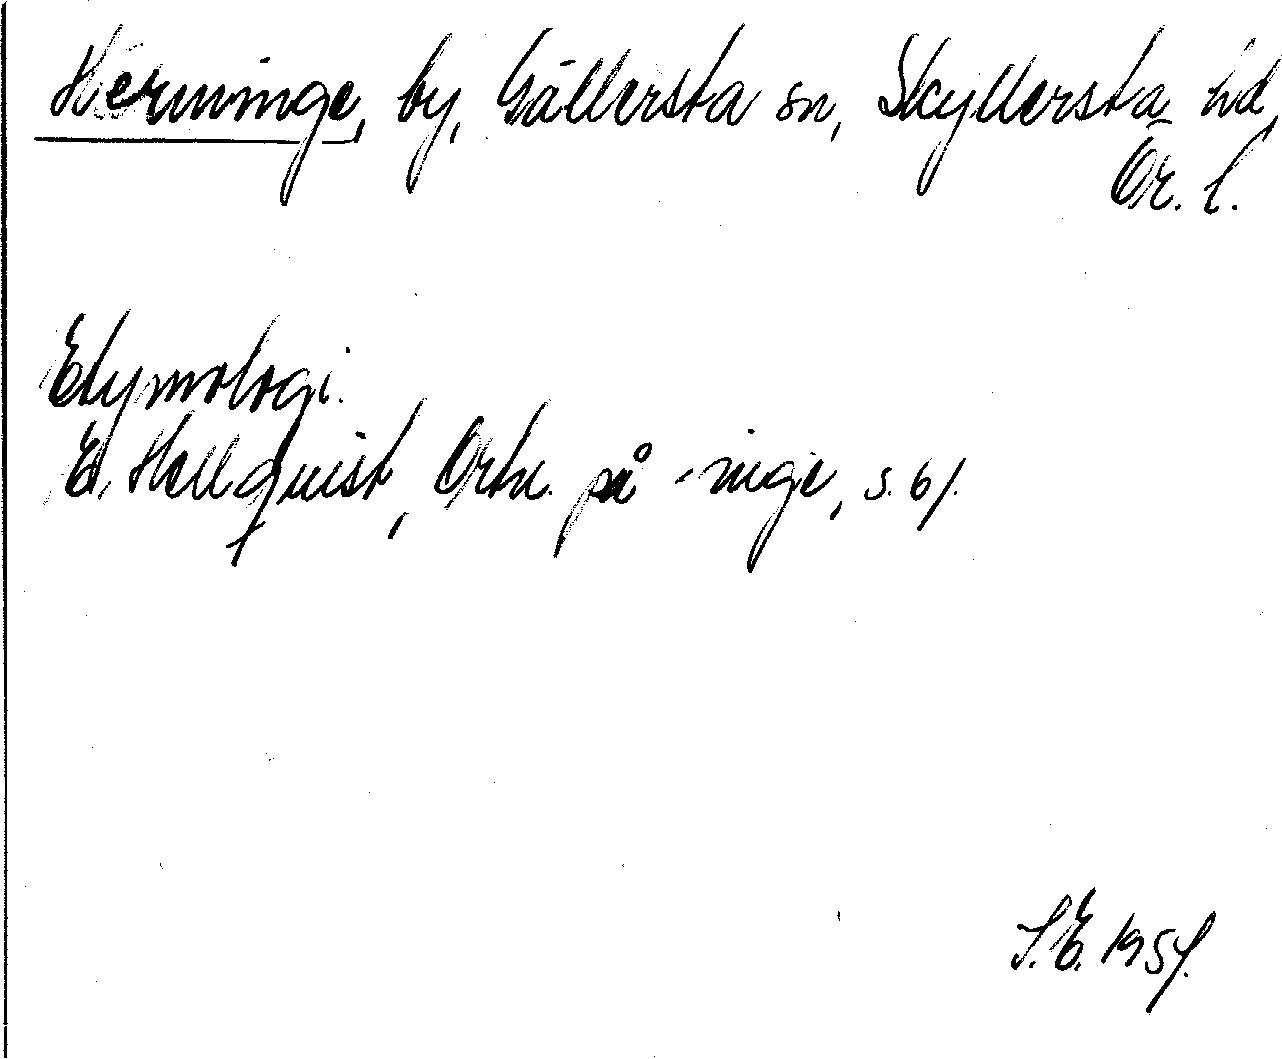 Herminge, by, Gällersta sn, Skyllersta hd,
Ör. l.
Etymologi.
E. Hellquist, Ortn. på -inge, s. 61.
S.E. 1951.